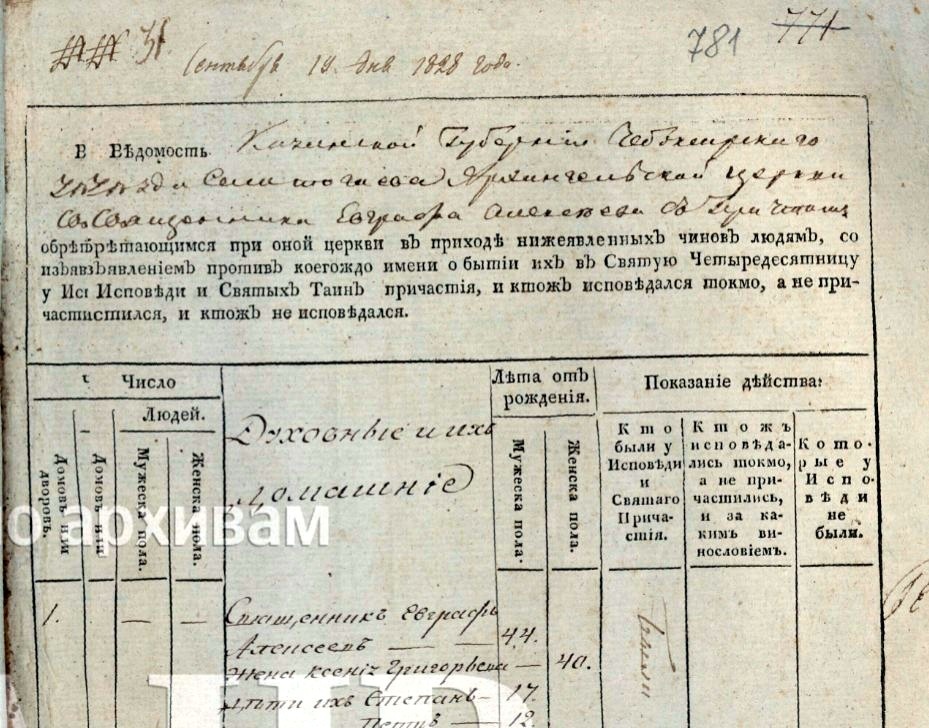 781 771
Сентября 14 дня 1828 года.
В Вѣдомость Казанской Губерніи Чебоксарского
Уѣзда Села Архангельской церкви
Священника Евграфа Алексеева съ Причтомъ
обрѣтрѣтающимся при оной церкви въ приходѣ нижеявленныхъ чиновъ людямъ, со
изъявзъявленіемъ противъ коегождо имени о бытіи ихъ въ Святую Четыредесятницу
у Исı Исповѣди и Святыхъ Таинъ причастія, и ктожъ исповѣдался токмо, а не при-
частистился, и ктожъ не исповѣдался.
Число
Людей.
Домовъ или дворовъ.
Домовъ или
Мужеска пола.
Женска пола.
Духовные и ихъ
домашніе
Лѣта отъ
рожденія.
Мужеска пола.
Женска пола.
Показаніе дѣйства:
Кто
были у
Исповѣди
и
Святаго
Прича-
стія.
Ктожъ
исповѣда-
лись токмо,
а не при-
частились,
и за ка-
кимъ ви-
нословіемъ.
Кото-
рые у
Испо-
вѣди
не
были.
о архивам
1. — — Священникъ Евграфъ
Алексеевъ — — 44.
Жена Ксенія Григорьева — 40.
Дѣти ихъ Степанъ — 17.
Петръ — 12.
Были